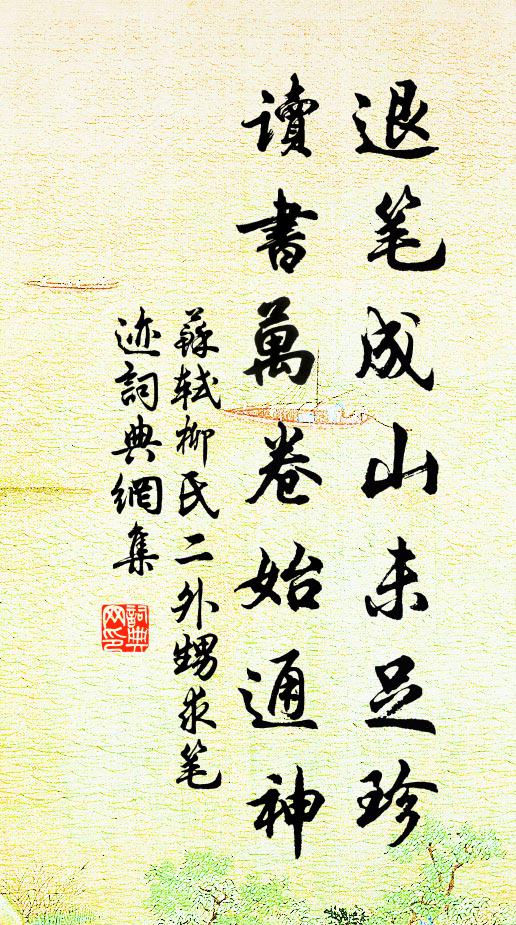 退笔成山未足珍
讀書萬卷始通神
蘇軾柳氏二外甥求笔
迹詞典網集
詞典
网印